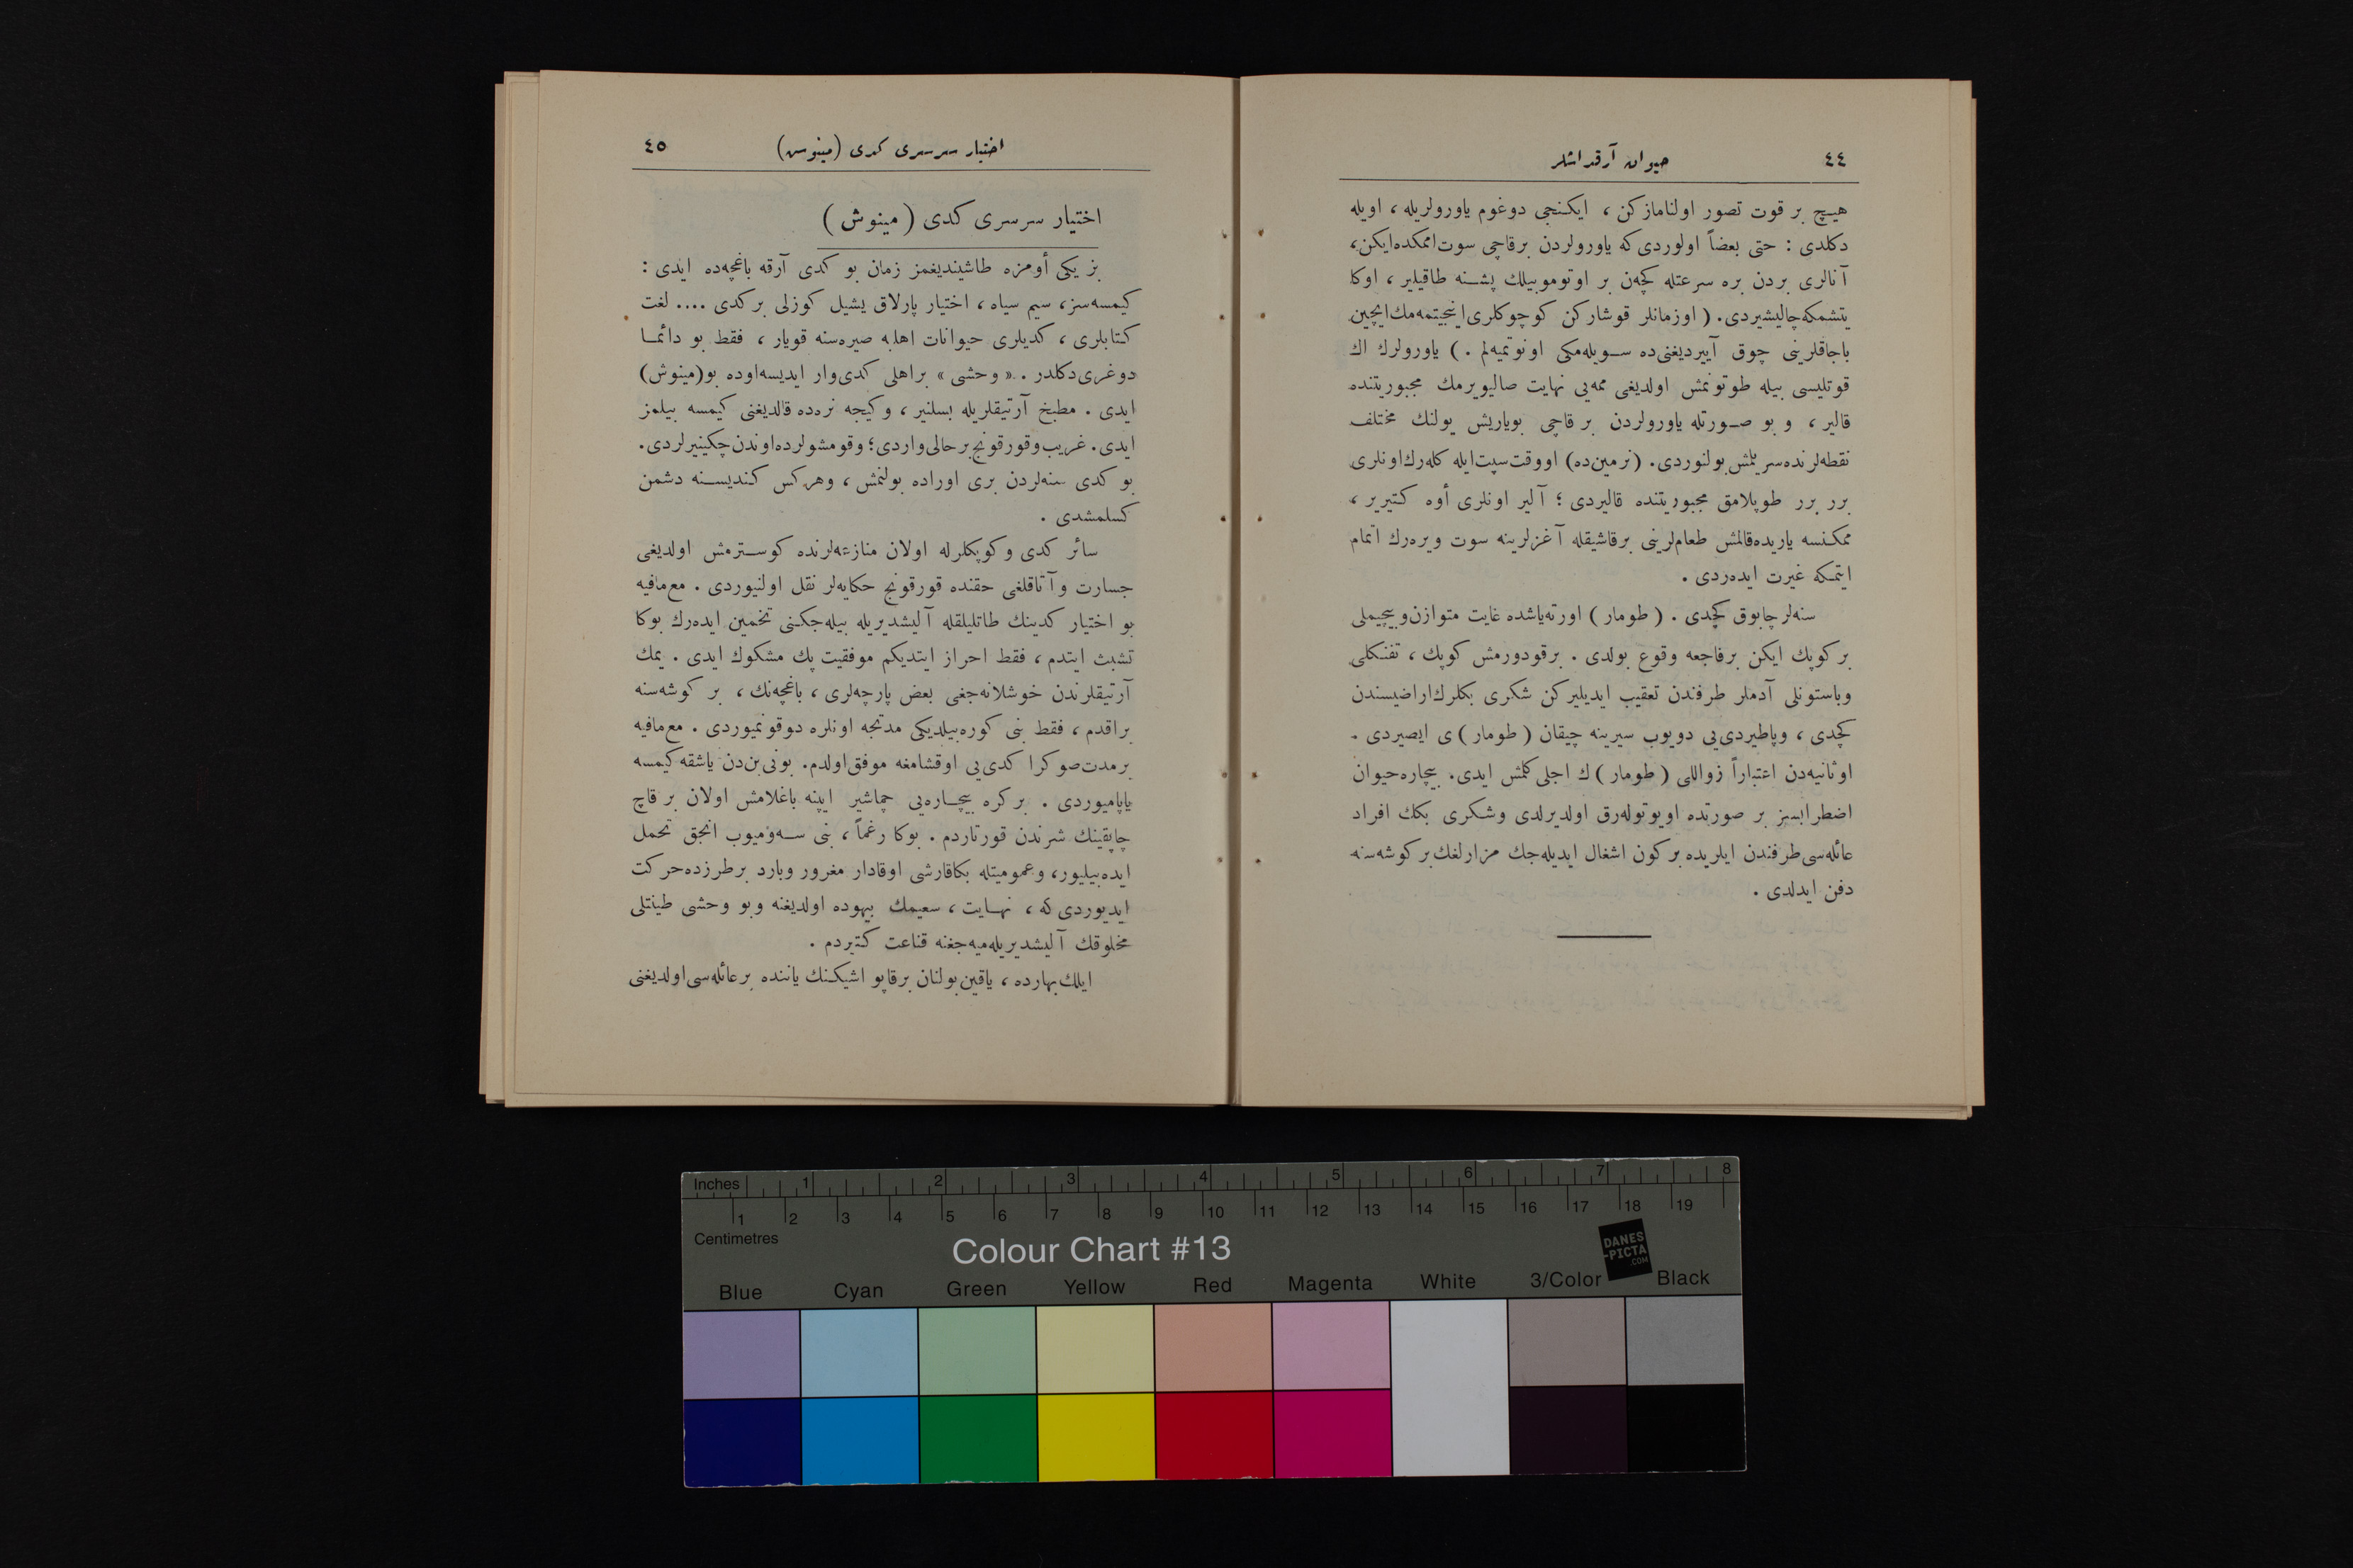 ٤٤
حيوان آرقداشلر
هيچ بر قوت تصور اولنامازكن ، ايكنجى دوغوم ياورولريله ، اويله
دكلدى : حتى بعضاً اولوردى كه ياورولردن برقاچى سوت امكده ايكن،
آنالرى بردن بره سرعتله كچه‌ن بر اوتوموبيلك پشنه طاقيلير ، اوكا
يتشمكه چاليشيردى. ( اوزمانلر قوشاركن كوچوكلرى اينجيتمه‌مك ايچين
باجاقلرينى چوق آييرديغنى ده سويله‌مكى اونوتميه‌لم . ) ياورولرك اك
قوتليسى بيله طوتونمش اولديغى ممه‌يى نهايت صاليويرمك مجبوريتنده
قالير ، و بو صورتله ياورولردن بر قاچى بوياريش يولنك مختلف
نقطه‌لرنده سريلمش بولنوردى. (نرمين‌ده) اووقت سپت ايله كله‌رك اونلرى
برر برر طوپلامق مجبوريتنده قاليردى ؛ آلير اونلرى أوه كتيرير ،
ممكنسه ياريده قالمش طعام‌لرينى برقاشيقله آغزلرينه سوت ويره‌رك اتمام
ايتمكه غيرت ايده‌ردى .
سنه‌لر چابوق كچدى . ( طومار ) اورته ياشده غايت متوازن و بيچيملى
بر كوپك ايكن برفاجعه وقوع بولدى . برقودورمش كوپك ، تفنكلى
وباستونلى آدملر طرفندن تعقيب ايديليركن شكرى بكلرك اراضيسندن
كچدى ، وپاطيردى‌يى دويوب سيرينه چيقان ( طومار ) ى ايصيردى .
اوثانيه‌دن اعتباراً زواللى ( طومار ) ك اجلى كلمش ايدى. بيچاره حيوان
اضطرابسز بر صورتده اويوتوله‌رق اولديرلدى وشكرى بكك افراد
عائله‌سى طرفندن ايلريده بر كون اشغال ايديله‌جك مزارلغك بر كوشه‌سنه
دفن ايدلدى .
اختيار سرسرى كدى (مينوش)
٤٥
اختيار سرسرى كدى ( مينوش )
بز يكى أومزه طاشينديغمز زمان بو كدى آرقه باغچه‌ده ايدى :
كيمسه‌سز، سيم سياه ، اختيار پارلاق يشيل كوزلى بركدى .... لغت
كتابلرى ، كديلرى حيوانات اهليه صيره‌سنه قويار ، فقط بو دائما
دوغرى دكلدر . « وحشى » براهلى كدى وار ايديسه اوده بو (مينوش)
ايدى . مطبخ آرتيقلريله بسلنير ، و كيجه نره‌ده قالديغنى كيمسه بيلمز
ايدى. غريب و قورقونج بر حالى واردى؛ و قومشولرده اوندن چكينيرلردى.
بو كدى سنه‌لردن برى اوراده بولنمش ، و هركس كنديسنه دشمن
كسلمشدى .
سائر كدى و كوپكلرله اولان منازعه‌لرنده كوسترمش اولديغى
جسارت و آتاقلغى حقنده قورقونج حكايه‌لر نقل اولنيوردى . مع‌مافيه
بو اختيار كدينك طاتليلقله آليشديريله بيله‌جكنى تخمين ايده‌رك بوكا
تشبث ايتدم ، فقط احراز ايتديكم موفقيت پك مشكوك ايدى . يمك
آرتيقلرندن خوشلانه‌جغى بعض پارچه‌لرى ، باغچه‌نك ، بر كوشه‌سنه
براقدم ، فقط بنى كوره‌بيلديكى مدتجه اونلره دوقونميوردى . مع‌مافيه
برمدت صوكرا كدى‌يى اوقشامغه موفق اولدم. بونى بن‌دن باشقه كيمسه
ياپاميوردى . بركره بيچاره‌يى چماشير ايپنه باغلامش اولان بر قاچ
چاپقينك شرندن قورتاردم . بوكا رغماً ، بنى سه‌وميوب انجق تحمل
ايده‌بيليور، و عموميتله بكا قارشى اوقادار مغرور وبارد برطرزده حركت
ايديوردى كه ، نهايت ، سعيمك بيهوده اولديغنه و بو وحشى طينتلى
مخلوقك آليشديريله‌ميه‌جغنه قناعت كتيردم .
ايلك بهارده ، ياقين بولنان برقاپو اشيكنك ياننده برعائله‌سى اولديغنى
Inches 1 2 3 4 5 6 7 8
1 2 3 4 5 6 7 8 9 10 11 12 13 14 15 16 17 18 19
Centimetres
Colour Chart #13
DANES
-PICTA
.COM
Blue Cyan Green Yellow Red Magenta White 3/Color Black